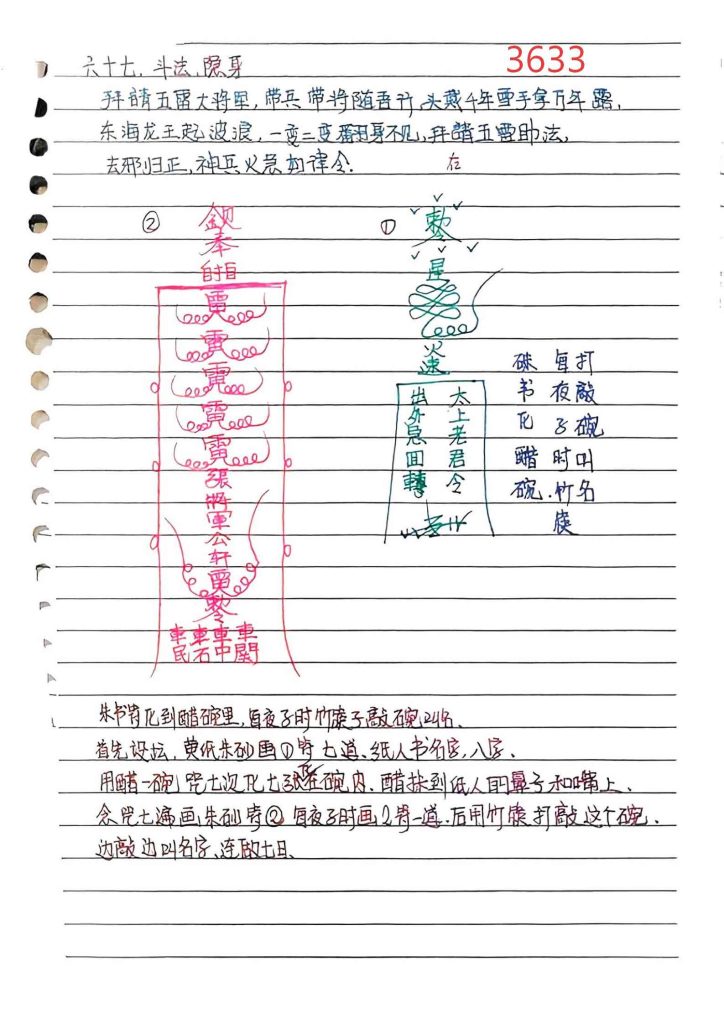 3633
六十七，斗法，隐身
拜請五雷大將軍，带兵带将随吾行，头戴千年雪手拿万年露，
东海龙王起波浪，一变二变翻身不见，拜請五雷助法，
去邪归正，神兵火急如律令．
在
②
奉
雷
雷
雷
雷
雷
張
將
軍
公
轩
車車車車
民石中関
①
星
火
速
太上老君令
出外急回轉
打敲碗叫名
每夜子时竹
朱书化醋碗．
朱书符化到醋碗里，每夜子时竹子敲碗叫名．
首先设坛，黄纸朱砂画①符七道、纸人书名字，八字，
用醋一碗 咒七次化七在碗内．醋抹到纸人的鼻子和嘴上．
念咒七遍画朱砂符②每夜子时画2符一道．后用竹打敲这个碗．
边敲边叫名字、连做七日、